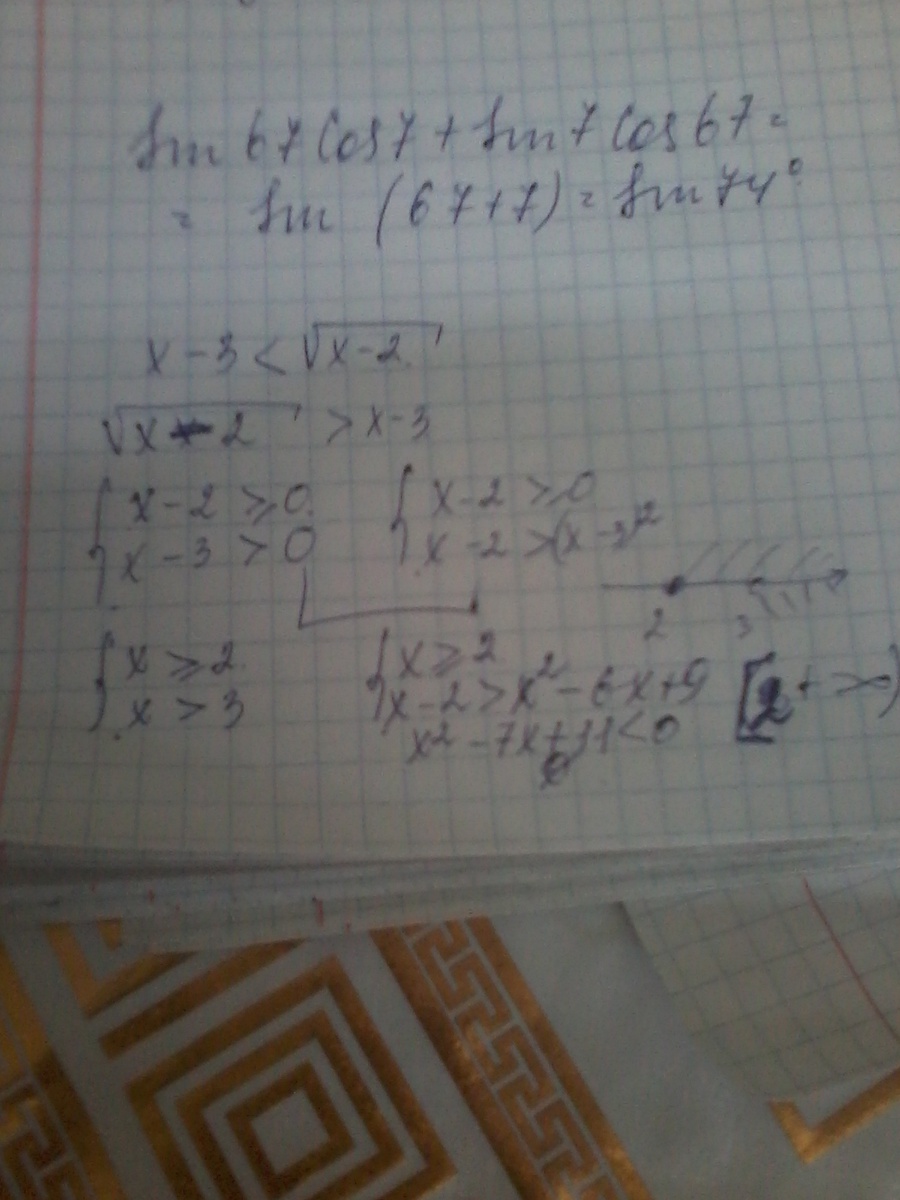 sin 67 cos 7 + sin 7 cos 67 =
= sin (67+7) = sin 74°
x - 3 < √x-2
√x-2 > x-3
{ x-2 ≥ 0 { x-2 ≥ 0
x - 3 > 0 x-2 > (x-3)²
2 3
{ x ≥ 2 { x ≥ 2
x > 3 x-2 > x² - 6x+9 [2 +∞)
x² - 7x+11 < 0